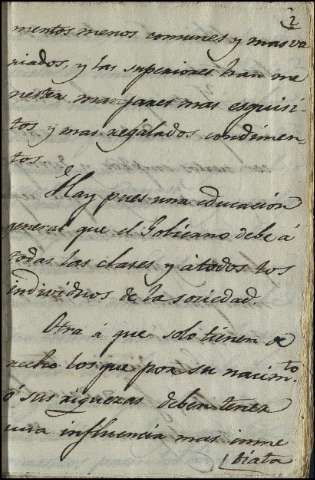 2
mentos menos comunes y mas va
riados, y las superiores han me
nester manjares mas esquisi
tos y mas regalados condimen
tos.
Hay pues una educación
general que el Soberano debe á
todas las clases y a todos los
individuos de la sociedad.
Otra á que solo tienen de
recho los que por su nacim.to
ó sus riquezas deben tener
una influencia mas inme
diata